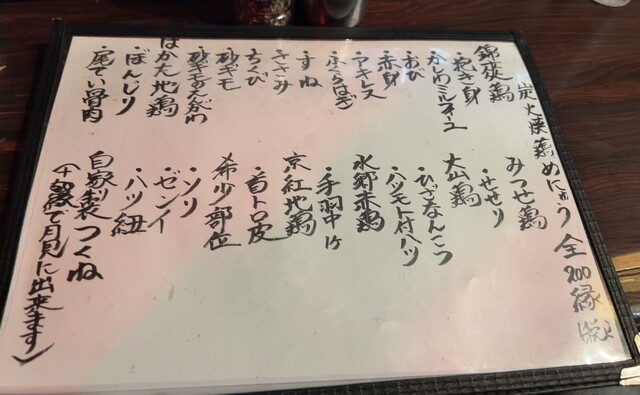 炭火焼鶏めにゅう 全200縁(税込)
錦爽鶏
・抱き身
・かしわミルフィーユ
・おび
・赤身
・アキレス
・ふくらはぎ
・すね
・ささみ
・ちくび
・砂ギモ
・砂ギモのえんがわ
はかた地鶏
・ぼんじり
・尾てい骨肉
みつせ鶏
・せせり
大山鶏
・ひざなんこつ
・ハツモト付ハツ
水郷赤鶏
・手羽中
京紅地鶏
・首トロ皮
希少部位
・ソリ
・ゼンイ
・ハツ紐
自家製つくね
(十50縁で月見に出来ます)